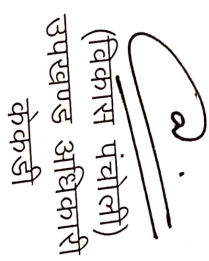 (विकास पंचोली)
उपखण्ड अधिकारी
केकडी